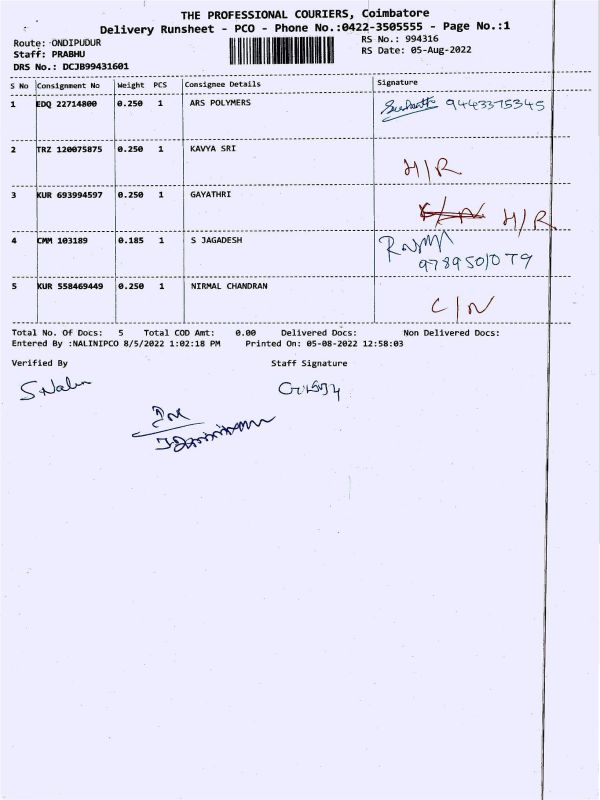 THE PROFESSIONAL COURIERS, Coimbatore
Delivery Runsheet - PCO - Phone No.:0422-3505555 - Page No.:1
Route: ONDIPUDUR RS No.: 994316
Staff: PRABHU RS Date: 05-Aug-2022
DRS No.: DCJB99431601
S No Consignment No Weight PCS Consignee Details Signature
1 EDQ 22714800 0.250 1 ARS POLYMERS 9443375345
2 TRZ 120075875 0.250 1 KAVYA SRI H/R
3 KUR 693994597 0.250 1 GAYATHRI H/R
4 CMM 103189 0.185 1 S JAGADESH
9789501079
5 KUR 558469449 0.250 1 NIRMAL CHANDRAN C/N
Total No. Of Docs: 5 Total COD Amt: 0.00 Delivered Docs: Non Delivered Docs:
Entered By :NALINIPCO 8/5/2022 1:02:18 PM Printed On: 05-08-2022 12:58:03
Verified By Staff Signature